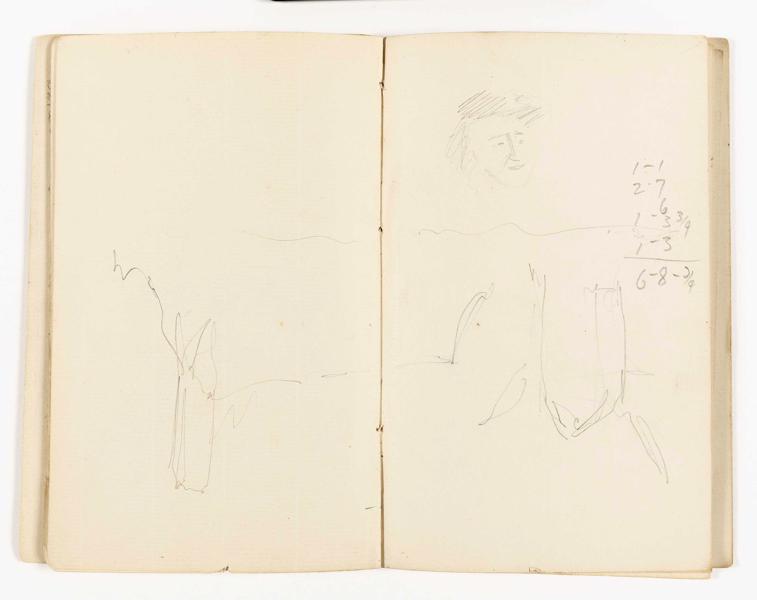 1-1
2-7
6
1-3 3/4
1-3
6-8-3/4